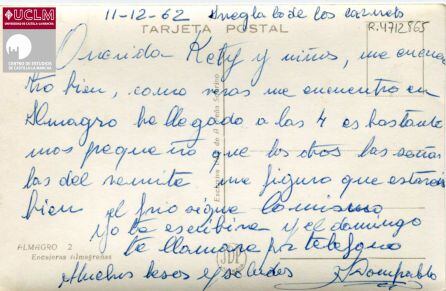 UCLM
UNIVERSIDAD DE CASTILLA-LA MANCHA
CENTRO DE ESTUDIOS
DE CASTILLA-LA MANCHA
11-12-62 Arregla lo de los carnets
TARJETA POSTAL
R.4712865
Querida Kety y niños, me encuen
tro bien, como veras me encuentro en
Almagro he llegado a las 4 es bastante
mas pequeño que los otros las señas
las del remite me figuro que estareis
bien el frio sigue lo mismo
yo te escribire y el domingo
te llamare por telefono
Muchos besos y saludos
ALMAGRO 2
Encajeras Almagreñas
JDP